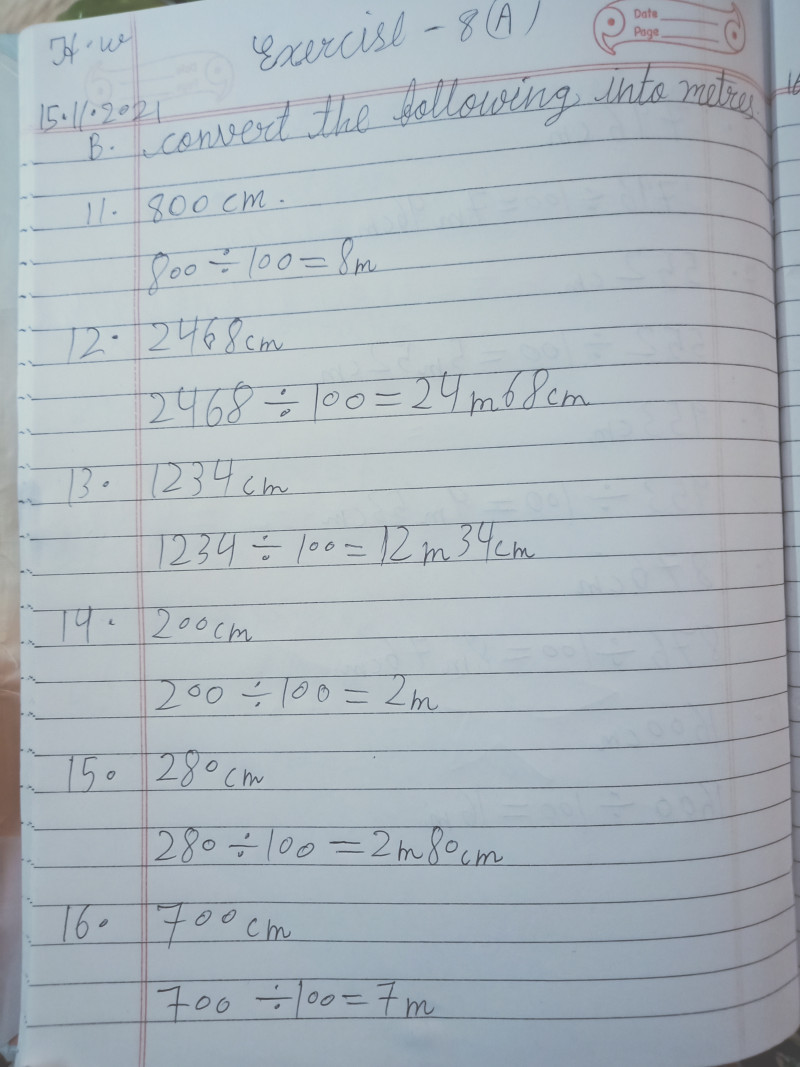 H.w
Exercise - 8(A)
Date
Page
15.11.2021
B. convert the following into metres.
11. 800 cm.
800 ÷ 100 = 8m
12. 2468cm
2468 ÷ 100 = 24m68cm
13. 1234cm
1234 ÷ 100 = 12m34cm
14. 200cm
200 ÷ 100 = 2m
15. 280cm
280 ÷ 100 = 2m80cm
16. 700cm
700 ÷ 100 = 7m